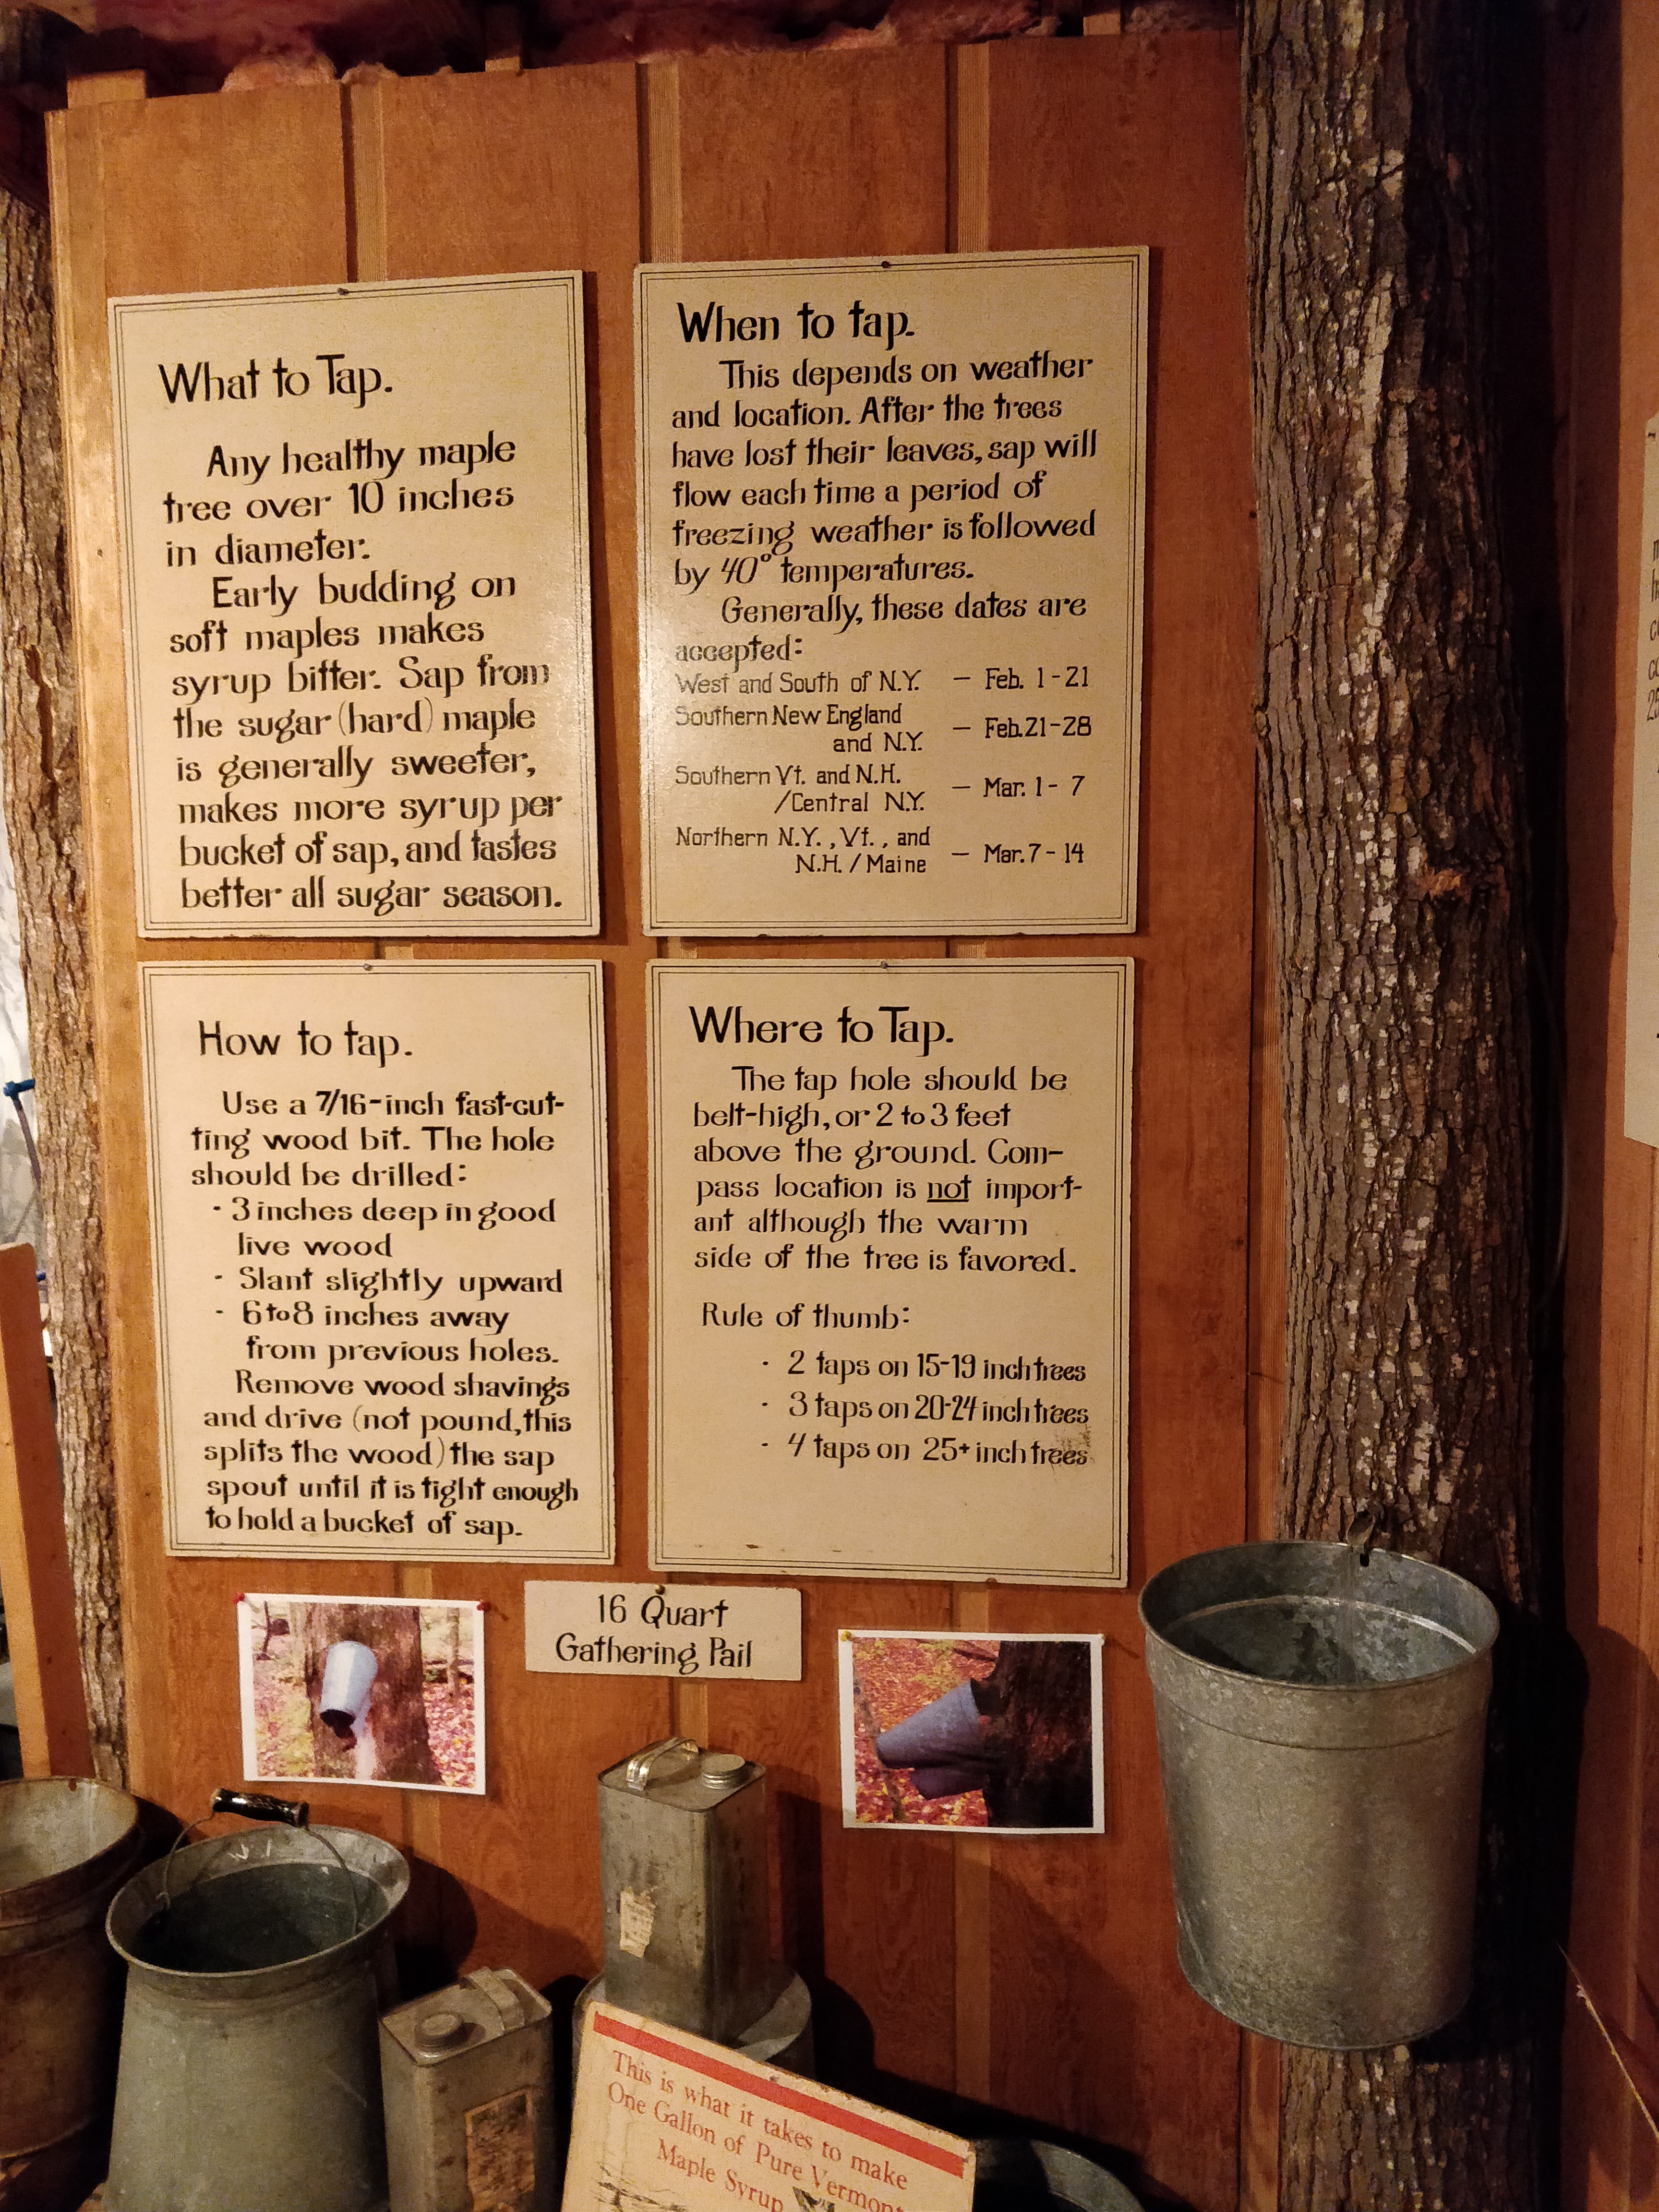 What to Tap.
Any healthy maple
tree over 10 inches
in diameter.
Early budding on
soft maples makes
syrup bitter. Sap from
the sugar (hard) maple
is generally sweeter,
makes more syrup per
bucket of sap, and tastes
better all sugar season.
When to tap.
This depends on weather
and location. After the trees
have lost their leaves, sap will
flow each time a period of
freezing weather is followed
by 40° temperatures.
Generally, these dates are
accepted:
West and South of N.Y. — Feb. 1-21
Southern New England
and N.Y. — Feb. 21-28
Southern Vt. and N.H.
/Central N.Y. — Mar. 1-7
Northern N.Y., Vt., and
N.H. / Maine — Mar. 7-14
How to tap.
Use a 7/16-inch fast-cut-
ting wood bit. The hole
should be drilled:
· 3 inches deep in good
live wood
- Slant slightly upward
- 6 to 8 inches away
from previous holes.
Remove wood shavings
and drive (not pound, this
splits the wood) the sap
spout until it is tight enough
to hold a bucket of sap.
Where to Tap.
The tap hole should be
belt-high, or 2 to 3 feet
above the ground. Com-
pass location is not import-
ant although the warm
side of the tree is favored.
Rule of thumb:
· 2 taps on 15-19 inch trees
· 3 taps on 20-24 inch trees
· 4 taps on 25+ inch trees
16 Quart
Gathering Pail
This is what it takes to make
One Gallon of Pure Vermont
Maple Syrup